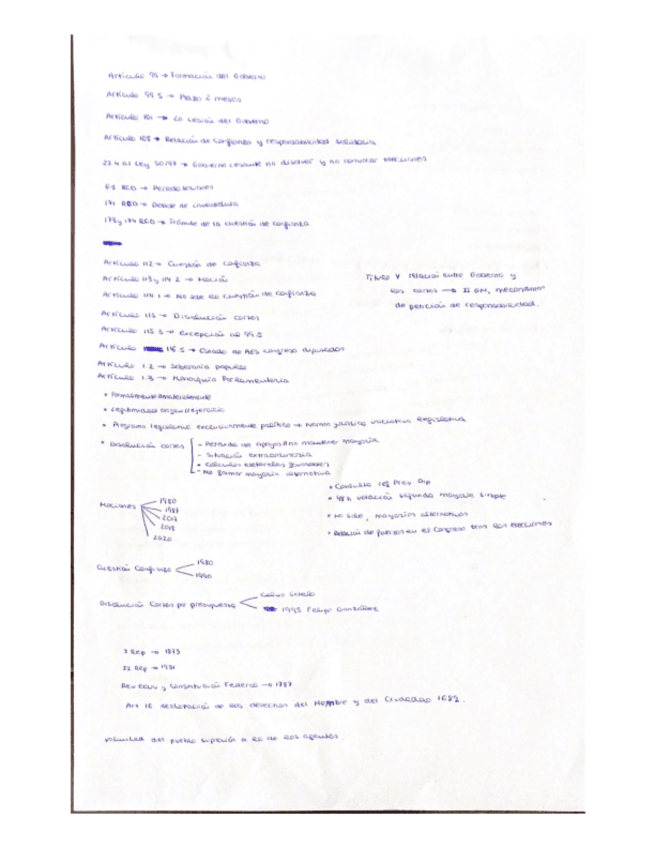 Artículo 99 → Formación del Gobierno
Artículo 99.5 → Plazo 2 meses
Artículo 101 → Lo cesión del Gobierno
Artículo 108 → Relación de confianza y responsabilidad solidaria
Ley 50/97 → Gobierno cesante no disolver y no convocar elecciones
RCD → Periodo sesiones
171 RCD → Debate de investidura
173 y 174 RCD → Trámite de la cuestión de confianza
Artículo 112 → Cuestión de confianza
Artículo 113 y 114.2 → Moción
Artículo 114.1 → No sale la cuestión de confianza
Título V relación entre Gobierno y
las cortes → II GM, mecanismos
de petición de responsabilidad.
Artículo 115 → Disolución cortes
Artículo 115.3 → Excepción no 99.5
Artículo 116.5 → Estado de AES congreso diputados
Artículo 1.2 → Soberanía popular
Artículo 1.3 → Monarquía Parlamentaria
• Formalmente
• Legitimidad origen/ejercicio
• Programa legislativo exclusivamente político → Norma jurídica iniciativa legislativa
• Disolución cortes
- Pérdida de apoyos/no mantener mayoría
- Situación extraordinaria
- Cálculos electorales
- No formar mayoría alternativa
• Consulta rey Pres Dip
• 48h votación segunda mayoría simple
• No sale, mayorías alternativas
• Relación de fuerzas en el Congreso tras las elecciones
Mociones
1980
1987
2017
2018
2020
Cuestión Confianza
1980
1990
Disolución Cortes por presupuesto
Calvo Sotelo
1995 Felipe González
I Rep → 1873
II Rep → 1931
Rev EEUU y Constitución Federal → 1787
Art 16 declaración de los derechos del Hombre y del Ciudadao 1682.
Voluntad del pueblo superior a la de los agentes.